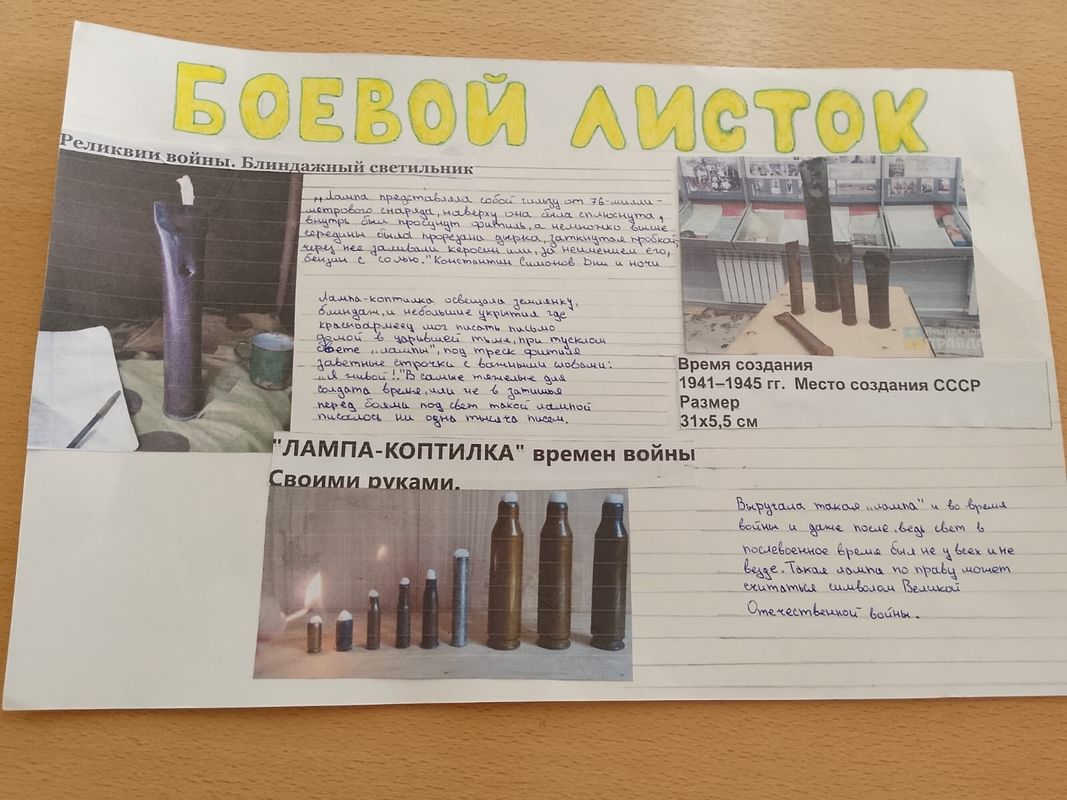 БОЕВОЙ ЛИСТОК
Реликвии войны. Блиндажный светильник
„Лампа представляла собой гильзу от 76-милли-
метрового снаряда, наверху она была сплюснута,
внутрь был просунут фитиль, а немножко выше
середины была прорезана дырка, заткнутая пробкой,
через нее заливали керосин или, за неимением его,
бензин с солью." Константин Симонов. Дни и ночи
Лампа-коптилка освещала землянку,
блиндаж, и небольшие укрытия где
красноармеец мог писать письмо
домой в царившей тьме, при тусклом
свете „лампы", под треск фитиля
заветные строчки с важными словами:
„Я живой!" В самые тяжелые для
солдата время, или же в затишье
перед боями под свет такой лампой
писалось ни одна тысяча писем.
Время создания
1941–1945 гг. Место создания СССР
Размер
31х5,5 см
"ЛАМПА-КОПТИЛКА" времен войны
Своими руками.
Выручала такая „лампа" и во время
войны и даже после, ведь свет в
послевоенное время был не у всех и не
везде. Такая лампа по праву может
считаться символом Великой
Отечественной войны.